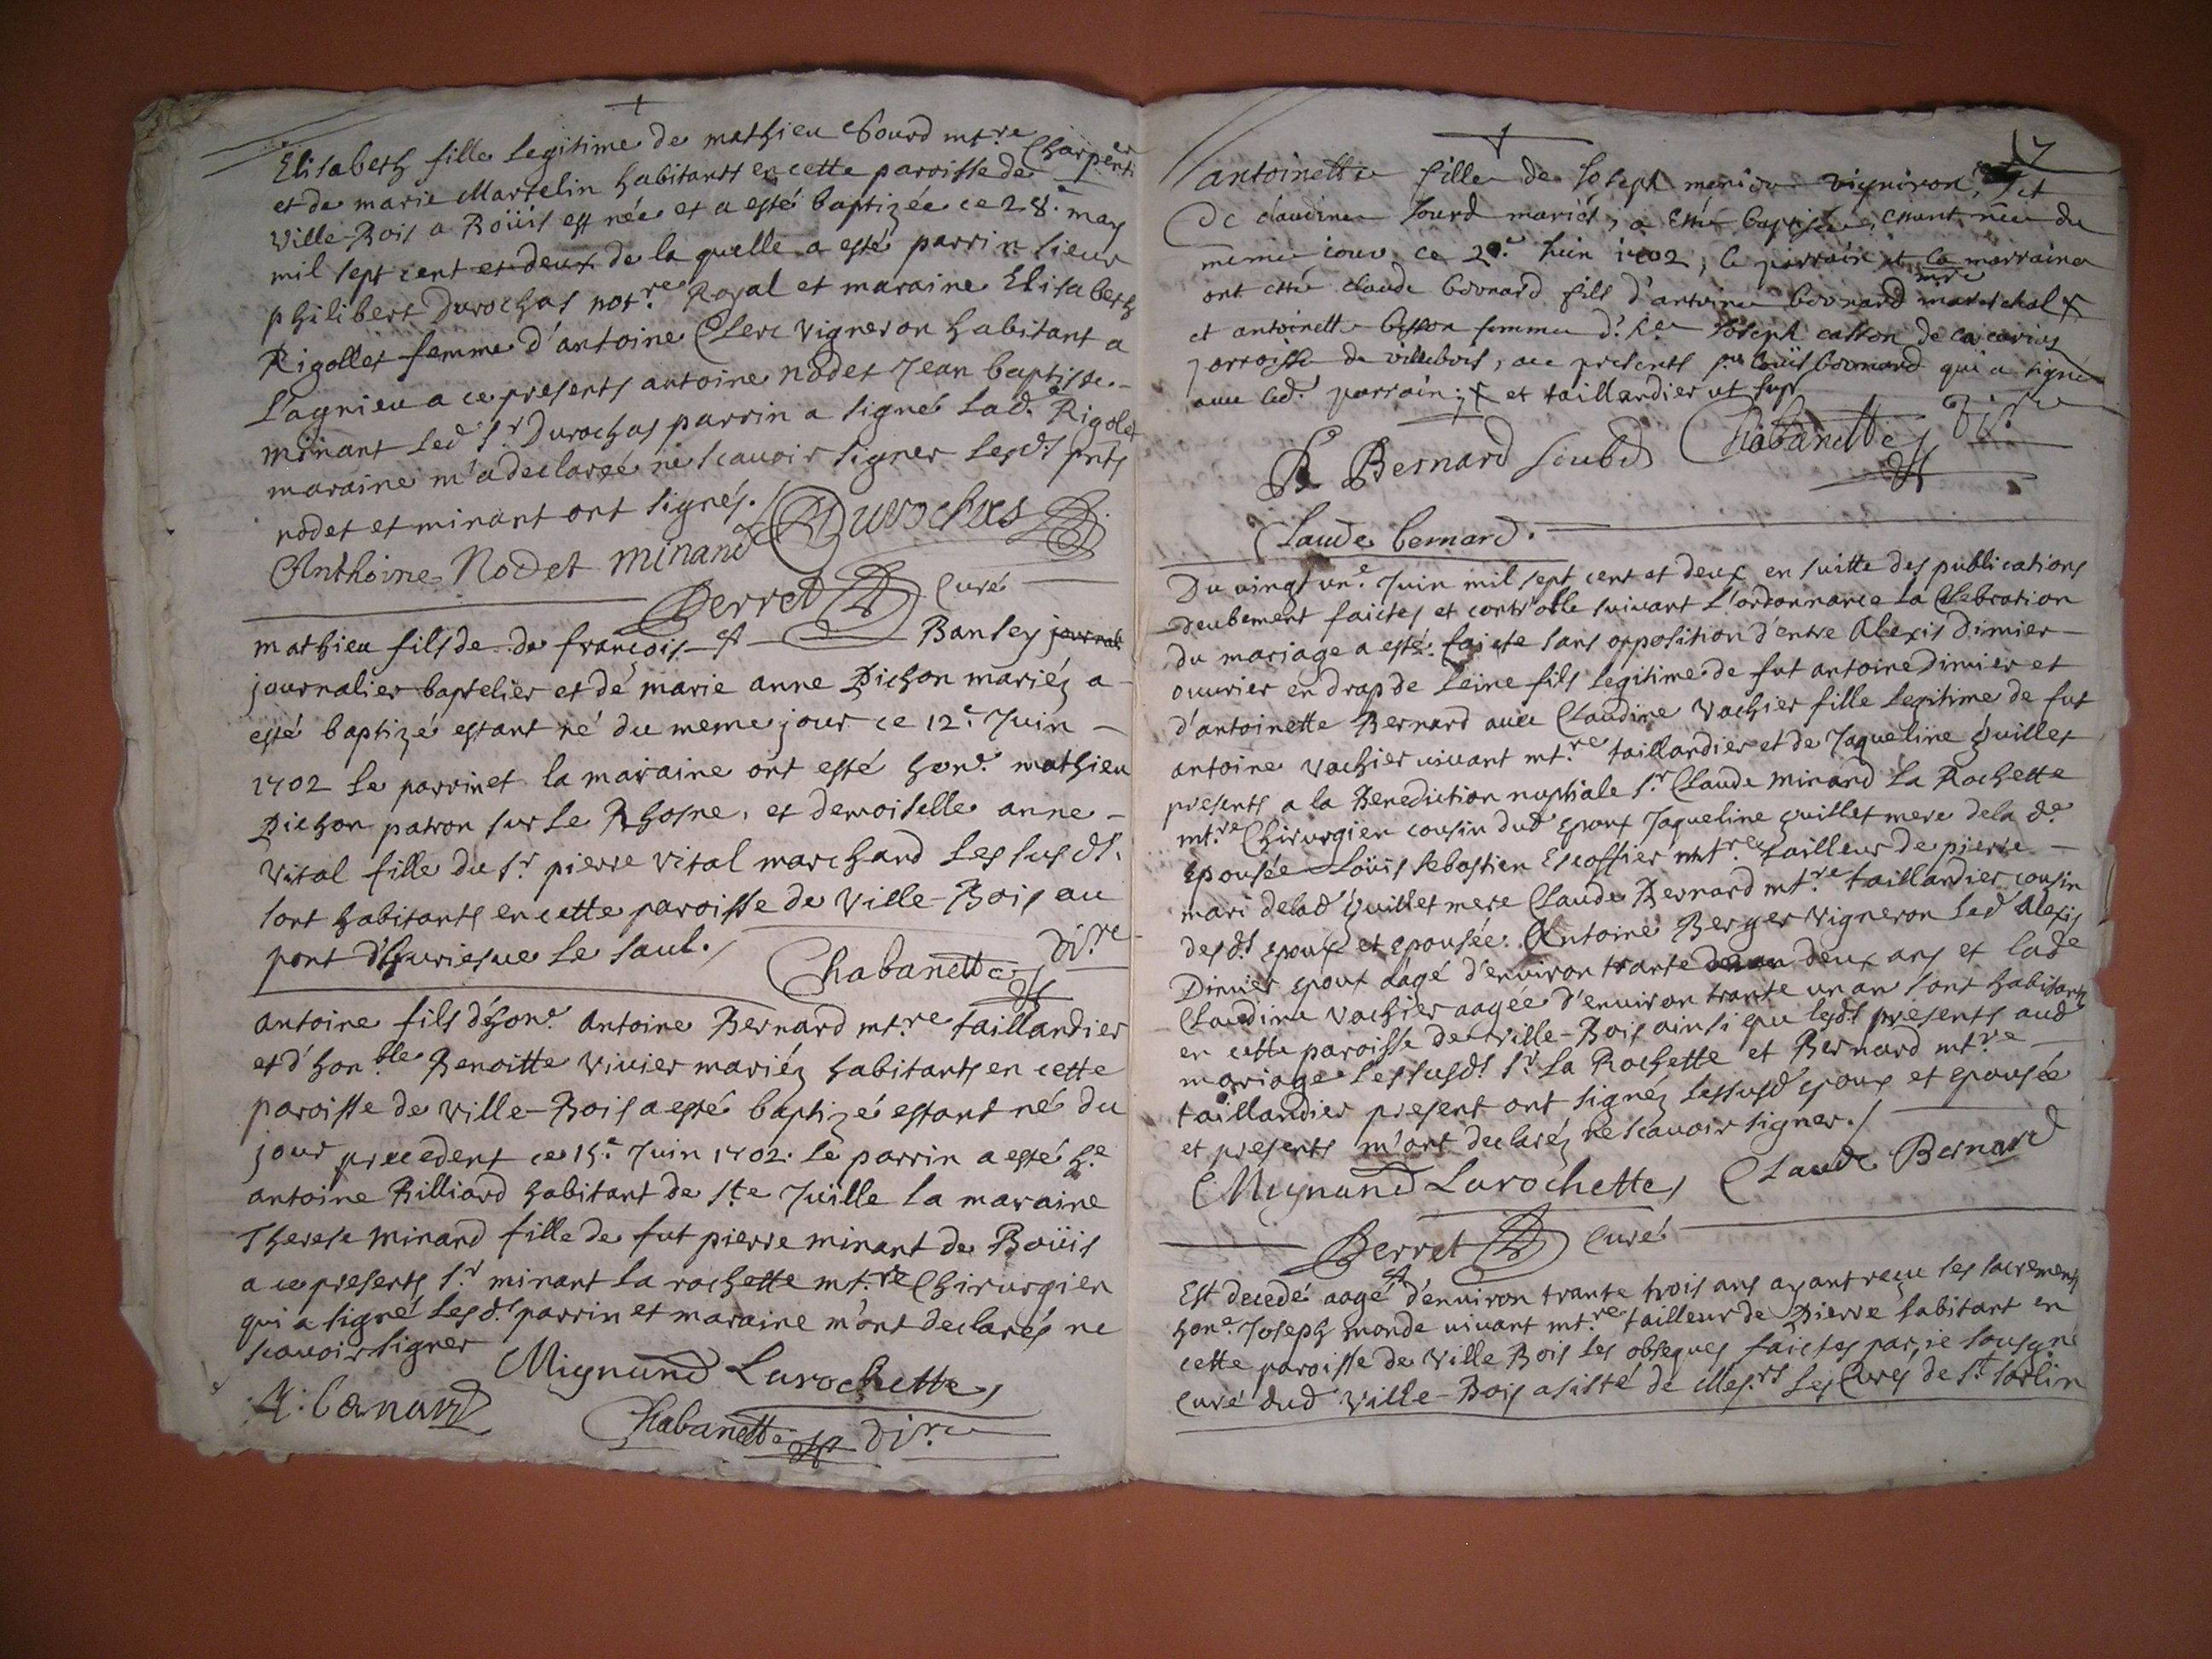 Elisabeth fille legitime de mathieu sourd mt.re Charpenti.er
et de marie Martelin habitants en cette paroisse de
Ville-Bois a Boüis est née et a esté baptizée ce 28.e may
mil sept cent et deux de la quelle a esté parrin sieur
philibert Durochas not.re Royal et maraine Elisabeth
Rigollet femme d'antoine Clerc vigneron habitant a
Lagnieu a ce presents antoine nodet Jean baptiste
minant led s.r Durochas parrin a signé lad.e Rigolet
maraine m'a declaré ne scauoir signer lesd.s pnts
nodet et minant ont signés./ Durochas
Anthoine Nodet minand
Perret Curé
mathieu fils de de françois Banley journali
journalier baptelier et de marie anne Pichon mariéz a
esté baptizé estant né du meme jour ce 12.e Juin
1702 le parrin et la maraine ont esté hon.e mathieu
Pichon patron sur le Rhosne, et demoiselle anne
Vital fille du s.r pierre vital marchand les susd.s
sont habitants en cette paroisse de Ville-Bois au
port le Saul./
Chabanettes di.re
antoine fils d'hon.e Antoine Bernard mt.re taillandier
et d'hon.ble Benoitte Viuier mariéz habitants en cette
paroisse de ville-Bois a esté baptizé estant né du
jour precedent ce 15.e Juin 1702. le parrin a esté h.e
antoine Billiard habitant de s.te Juille la maraine
Therese minard fille de fut pierre minant de Boüis
a ce presents s.r minant la rochette mt.re Chirurgien
qui a signé lesd.s parrin et maraine m'ont declarés ne
scauoir signer
Mignand Larochette
Chabanette di.re
17
antoinette fille de Joseph menier vigniron, et
de claudine sourd mariés, a esté baptisée estant née du
meme jour ce 20.e Juin 1702, le parrain et la marraine
ont esté claude bernard fils d'antoine bernard mre mareschal
et antoinette besson femme d'h.e Joseph casson de
parroisse de villebois, ace presents s.r louis bernard qui a signé
auec led.t parrain; et taillandier ut sup
Bernard Chabanettes di.re
Claude bernard.
Du vingt un.e Juin mil sept cent et deux en suitte des publications
deubement faictes et controlle suiuant l'ordonnance la Celebration
du mariage a esté faicte sans opposition d'entre Alexis Dimier
ouurier en drap de leine fils legitime de fut antoine Dimier et
d'antoinette Bernard auec Claudine Vachier fille legitime de fut
antoine vachier viuant mt.re taillandier et de Jaqueline Guillet
presents a la Benediction nuptiale s.r Claude minard la Rochette
mt.re Chirurgien cousin dud epoux Jaqueline guillet mere de la d.e
epousée Loüis sebastien Escoffier mt.re tailleur de pierre
mari de lad guillet mere Claude Bernard mt.re taillandier cousin
desd.s epoux et epousée. Antoine Berger vigneron led Alexis
Dimier epoux aagé d'enuiron trante deux ans et lad.e
Claudine vachier aagée d'enuiron trante un an sont habitants
en cette paroisse de Ville-Bois ainsi que lesd.s presents aud
mariage les susd.s s.r la Rochette et Bernard mt.re
taillandier present ont signéz les susd epoux et epousée
et presents m'ont declaréz ne scauoir signer./
Mignand Larochette Claude Bernard
Perret Curé
Est decedé aagé d'enuiron trante trois ans ayant reçu les sacrements
hon.e Joseph monde viuant mt.re tailleur de Pierre habitant en
cette paroisse de Ville Bois les obseques faictes par, je sousigné
Curé dud Ville-Bois asisté de Mes.rs les Curés de s.t sorlin